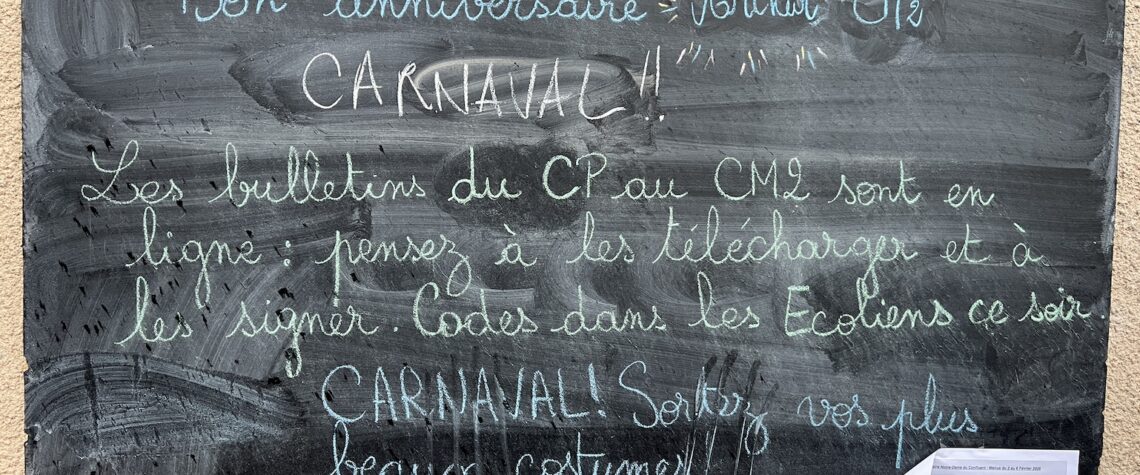 Bon anniversaire
CARNAVAL!!
Les bulletins du CP au CM2 sont en
ligne : pensez à les télécharger et à
les signer. Codes dans les Ecoliens ce soir.
CARNAVAL! Sortez vos plus
beaux costumes!